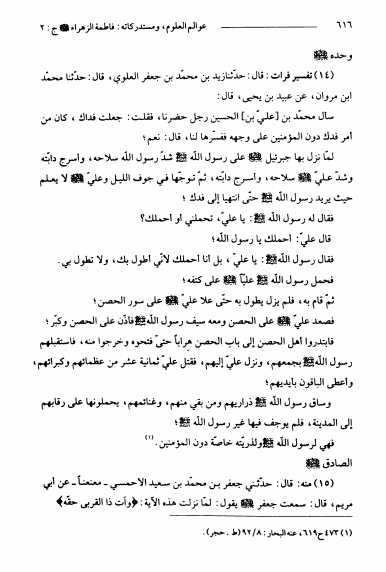 ٦١٦ عوالم العلوم، ومستدركاته: فاطمة الزهراء ﷺ ج: ٢
وحده ﷺ
(١٤) تفسير فرات: قال: حدّثنا زيد بن محمّد بن جعفر العلوي، قال: حدّثنا محمّد
ابن مروان، عن عبيد بن يحيى، قال:
سال محمّد بن [عليّ بن] الحسين رجل حضرنا، فقلت: جعلت فداك، كان من
أمر فدك دون المؤمنين على وجهه ففسّرها لنا، قال: نعم؛
لمّا نزل بها جبرئيل ﷺ على رسول اللّه ﷺ شدّ رسول اللّه سلاحه، وأسرج دابّته
وشدّ عليّ ﷺ سلاحه، وأسرج دابّته، ثمّ توجّها في جوف الليل وعليّ ﷺ لا يعلم
حيث يريد رسول اللّه ﷺ حتّى انتهيا إلى فدك؛
فقال له رسول اللّه ﷺ: يا عليّ، تحملني أو أحملك؟
قال عليّ: أحملك يا رسول اللّه؛
فقال رسول اللّه ﷺ: يا عليّ، بل أنا أحملك لأنّي أطول بك، ولا تطول بي.
فحمل رسول اللّه ﷺ عليّاً ﷺ على كتفه؛
ثمّ قام به، فلم يزل يطول به حتّى علا عليّ ﷺ على سور الحصن؛
فصعد عليّ ﷺ على الحصن ومعه سيف رسول اللّه ﷺ فأذّن على الحصن وكبّر؛
فابتدروا أهل الحصن إلى باب الحصن هراباً حتّى فتحوه وخرجوا منه، فاستقبلهم
رسول اللّه ﷺ بجمعهم، ونزل عليّ إليهم، فقتل عليّ ثمانية عشر من عظمائهم وكبرائهم،
وأعطى الباقون بأيديهم؛
وساق رسول اللّه ﷺ ذراريهم ومن بقي منهم، وغنائمهم، يحملونها على رقابهم
إلى المدينة، فلم يوجف فيها غير رسول اللّه ﷺ؛
فهي لرسول اللّه ﷺ ولذرّيّته خاصّة دون المؤمنين.(١)
الصادق ﷺ
(١٥) منه: قال: حدّثني جعفر بن محمّد بن سعيد الاحمسي ـ معنعناً ـ عن أبي
مريم، قال: سمعت جعفر ﷺ يقول: لمّا نزلت هذه الآية: ﴿وآت ذا القربى حقّه﴾
(١) ٤٧٣ ح٦١٩، عنه البحار: ٩٢/٨ (ط. حجر).